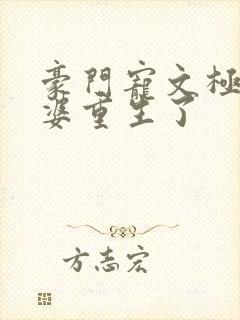 豪門寵文極
婆重生了
方志宏